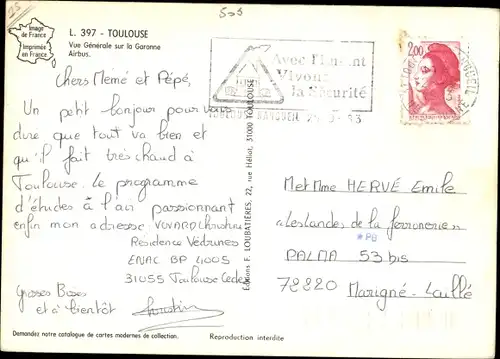 25
505
Image
de France
Imprimée
en France
L. 397 - TOULOUSE
Vue Générale sur la Garonne
Airbus.
Avec l'Enfant
Vivons
la Sécurité
TOULOUSE RANGUEIL
2,00
Chers Mémé et Pépé,
Un petit bonjour pour vous
dire que tout va bien et
qu'il fait très chaud à
Toulouse. Le programme
d'études à l'air passionnant
enfin mon adresse VOVARD Christine
Residence Védrunes
ENAC BP 4005
31055 Toulouse Cedex
Grosses Bises
et à bientôt Christine
Editions F. LOUBATIÈRES, 22, rue Héliot, 31000 TOULOUSE
Met Mme HERVÉ Emile
"Les landes de la ferronnerie"
*PB
PALNA 53 bis
72220 Marigné-Laillé
Demandez notre catalogue de cartes modernes de collection.
Reproduction interdite